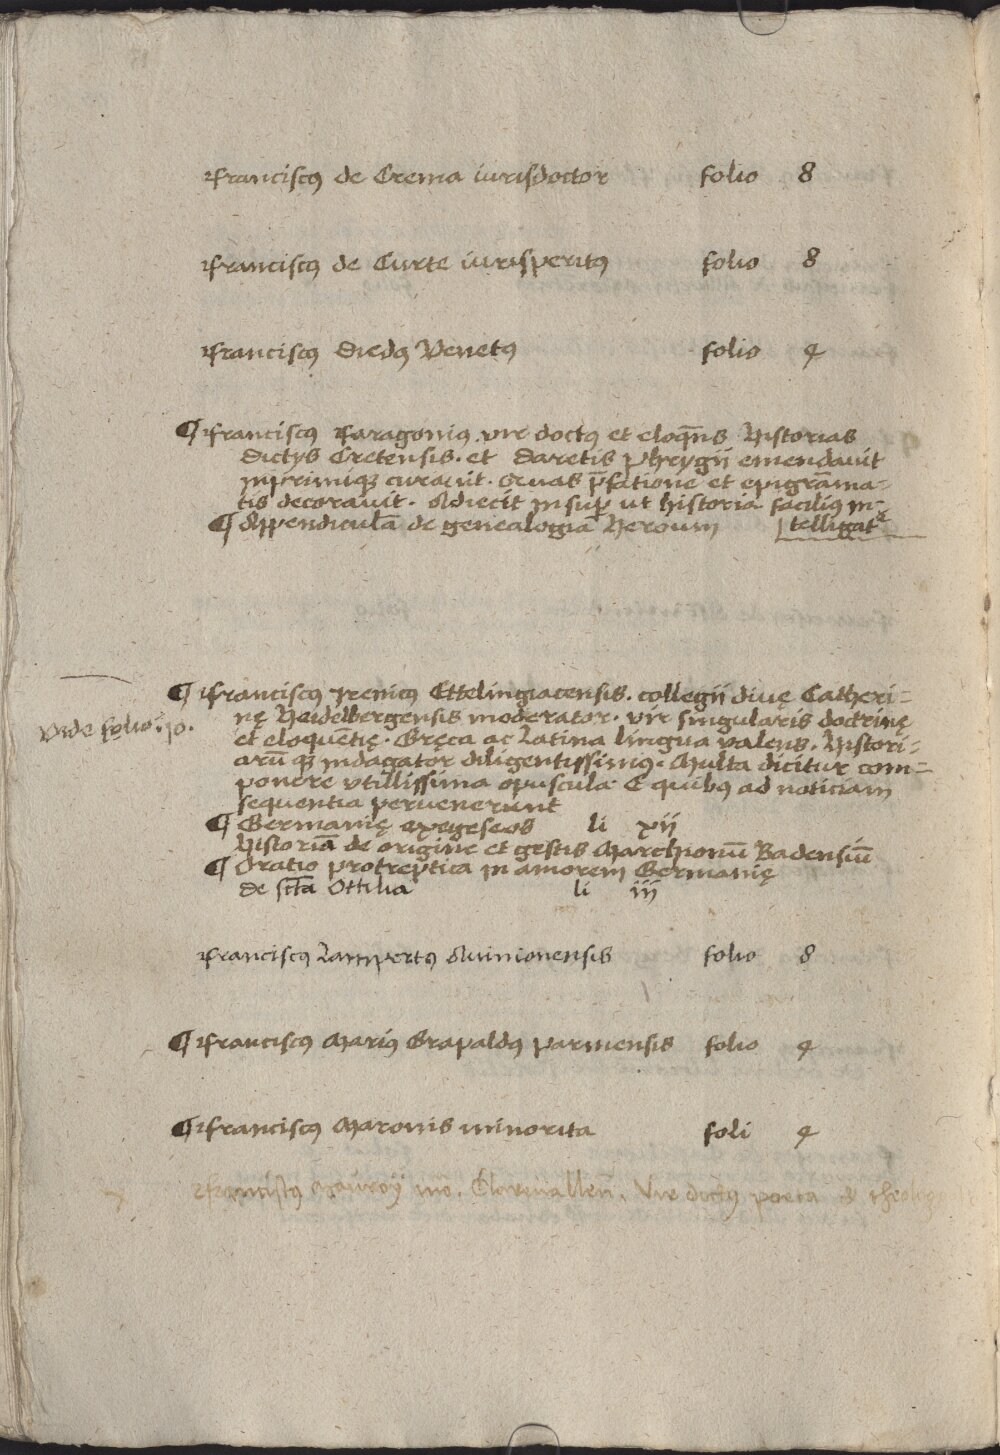 Franciscꝯ de Crema iurisdoctor folio 8
Franciscꝯ de Curte iurisperitꝯ folio 8
Franciscꝯ Diedꝯ Venetꝯ folio 4
¶ Franciscꝯ Faragoniꝯ vir doctꝯ et eloq̄ns Historias
Dictys Cretensis. et Daretis phrygii emendauit
imprimiqꝫ curauit. Quas p̄fatione et epigram̄a-
tis decorauit. Adiecit insuꝑ ut historia faciliꝯ in-
telligat᷑
¶ Appendiculā de genealogia Heroum
Vide folio: 10.
¶ Franciscꝯ Irenicꝯ Ettelingiacensis. collegii diuę Catheri-
nę Heidelbergensis moderator. vir singularis doctrinę
et eloquētię. Gręca ac Latina lingua valens. Histori-
arū qꝫ indagator diligentissimꝯ. Multa dicitur com-
ponere vtillissima opuscula. E quibꝯ ad noticiam
sequentia peruenerunt
¶ Germanię exegeseos li xii
Historiā de origine et gestis Marchionū Badensiū
¶ Oratio protreptica in amorem Germanię
de sctā Ottilia li iii
Franciscꝯ Lampertꝯ Auinionensis folio 8
¶ Franciscꝯ Mariꝯ Grapaldꝯ parmensis folio 4
¶ Franciscꝯ Maronis minorita foli 4
Franciscꝯ mō. Clarevallen̄. Vir doctꝯ poeta & theologꝯ